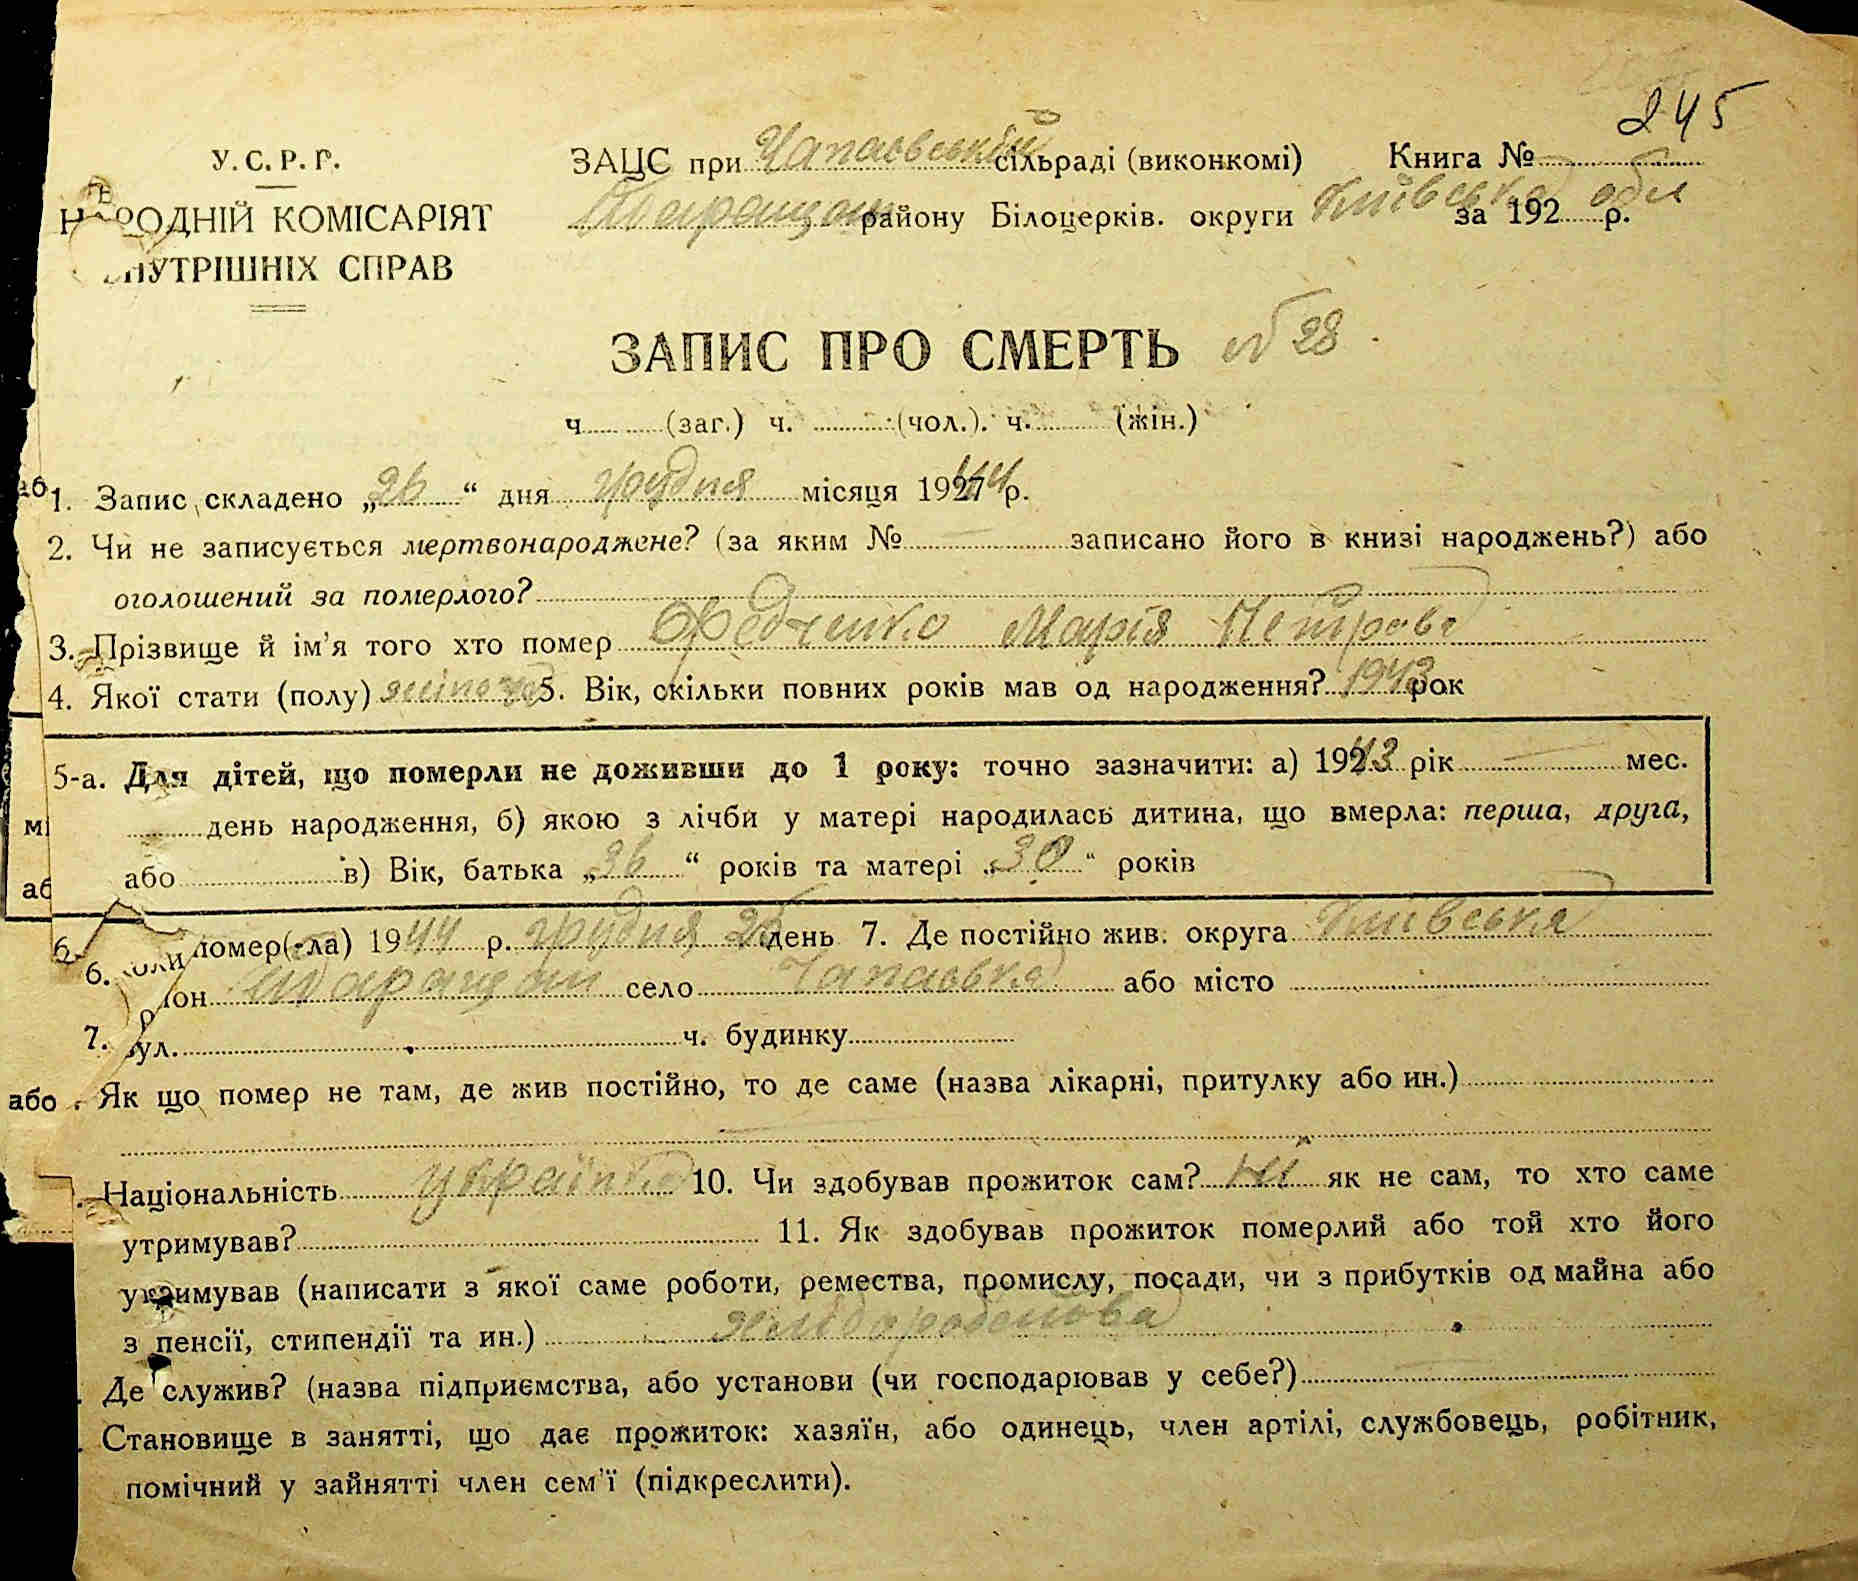 245
У.С.Р.Р. ЗАЦС при Чапаєвській сільраді (виконкомі) Книга №
НАРОДНІЙ КОМІСАРІЯТ Таращан району Білоцерків. округи Київська обл за 192 р.
ВНУТРІШНІХ СПРАВ
ЗАПИС ПРО СМЕРТЬ № 28
ч. (заг.) ч. (чол.). ч. (жін.)
1. Запис складено „26“ дня грудня місяця 1944 р.
2. Чи не записується мертвонароджене? (за яким № записано його в книзі народжень?) або
оголошений за померлого?
3. Прізвище й ім'я того хто помер Федченко Марія Петрова
4. Якої стати (полу) жіноча 5. Вік, скільки повних років мав од народження? 1943 рок
5-а. Для дітей, що померли не доживши до 1 року: точно зазначити: а) 1943 рік — мес.
день народження, б) якою з лічби у матері народилась дитина, що вмерла: перша, друга,
або в) Вік, батька „36“ років та матері „30“ років
6. Коли помер(-ла) 1944 р. грудня 26 день 7. Де постійно жив: округа Київська
район Таращан село Чапаєвка або місто
7. вул. ч. будинку
або . Як що помер не там, де жив постійно, то де саме (назва лікарні, притулку або ин.)
. Національність українка 10. Чи здобував прожиток сам? Ні як не сам, то хто саме
утримував? 11. Як здобував прожиток померлий або той хто його
утримував (написати з якої саме роботи, ремества, промислу, посади, чи з прибутків од майна або
з пенсії, стипендії та ин.)
. Де служив? (назва підприємства, або установи (чи господарював у себе?)
. Становище в занятті, що дає прожиток: хазяїн, або одинець, член артілі, службовець, робітник,
помічний у зайнятті член сем'ї (підкреслити).